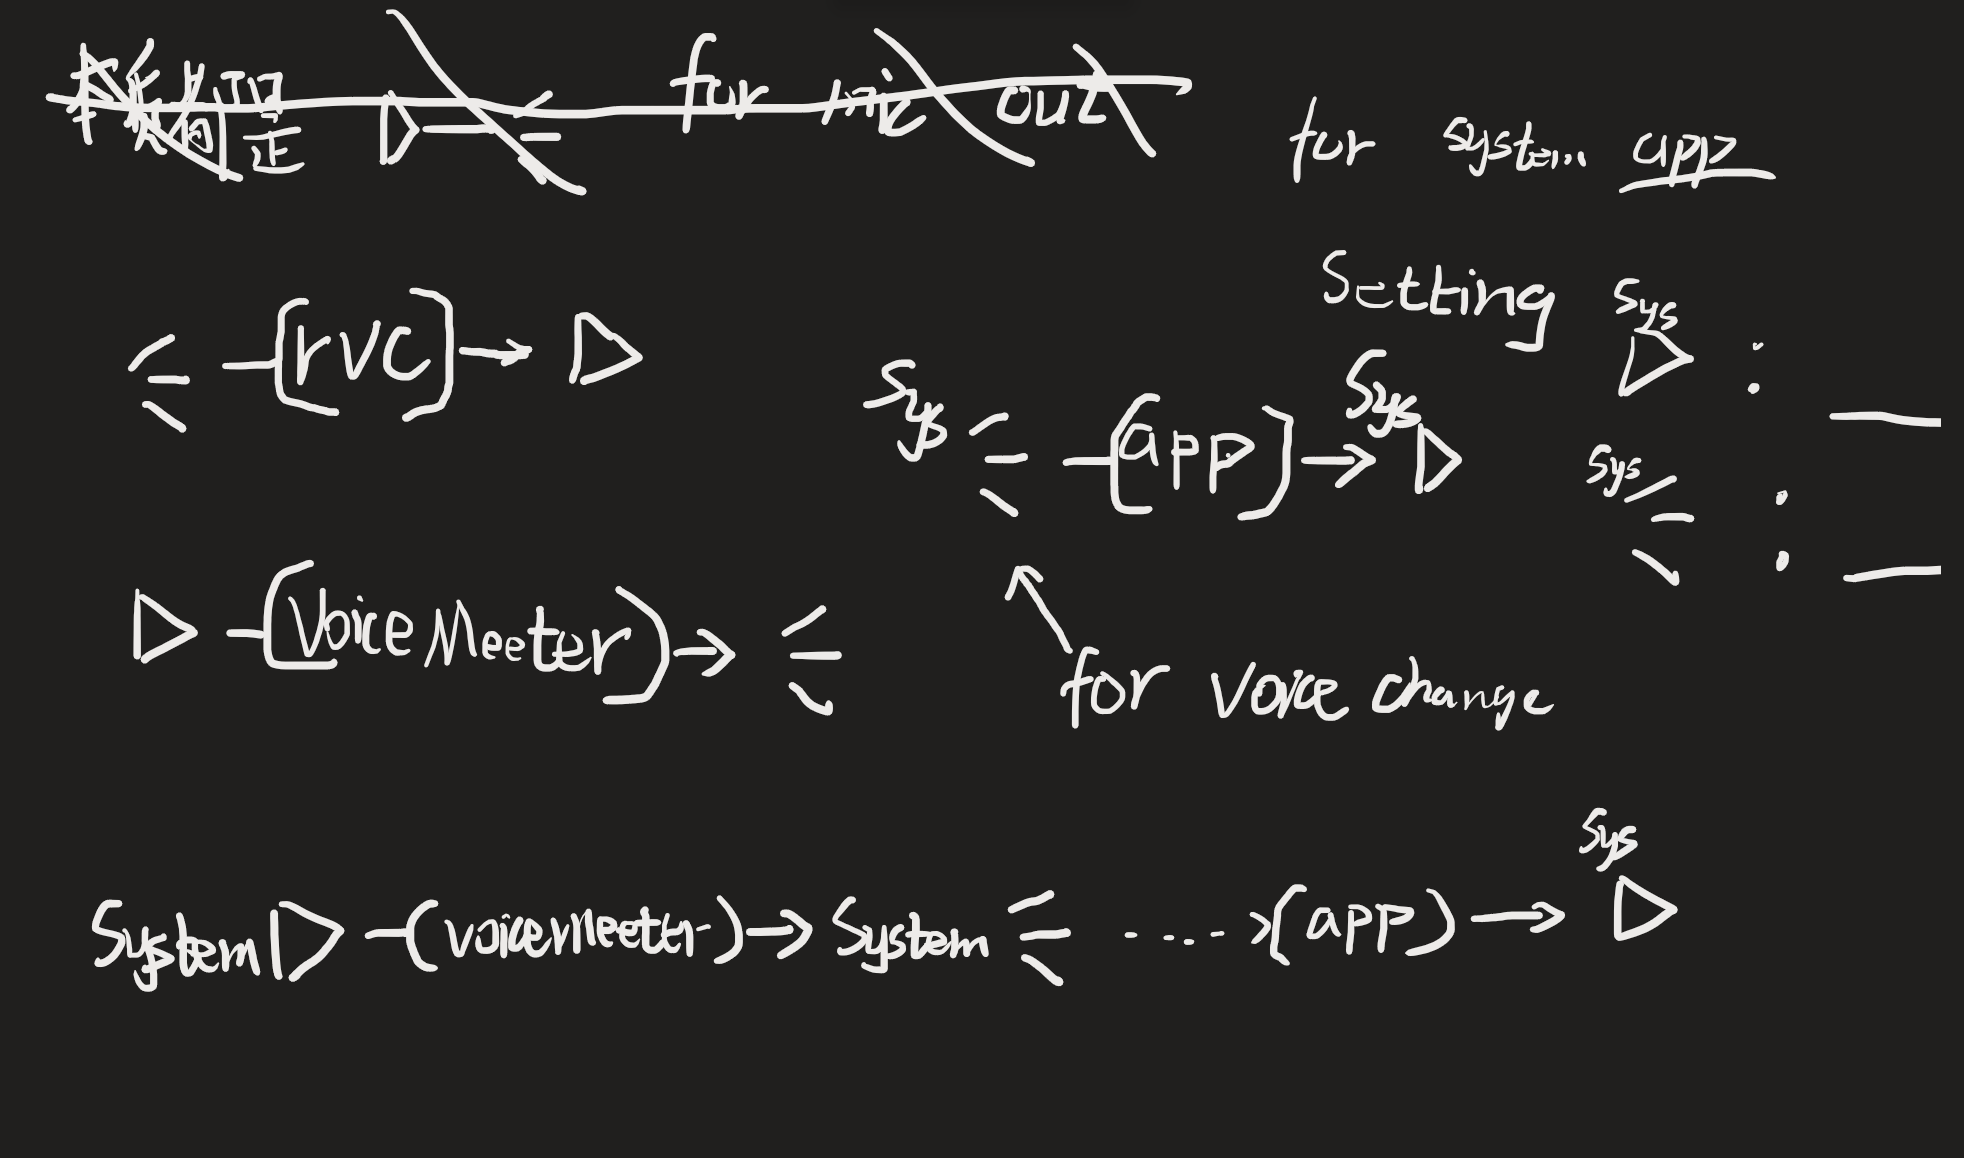 for mic out
for system app
Setting sys :
(rvc) →
sys (app) → sys
sys :
(VoiceMeeter) →
for voice change
sys
System (voicemeeter) → System .... >(app) →